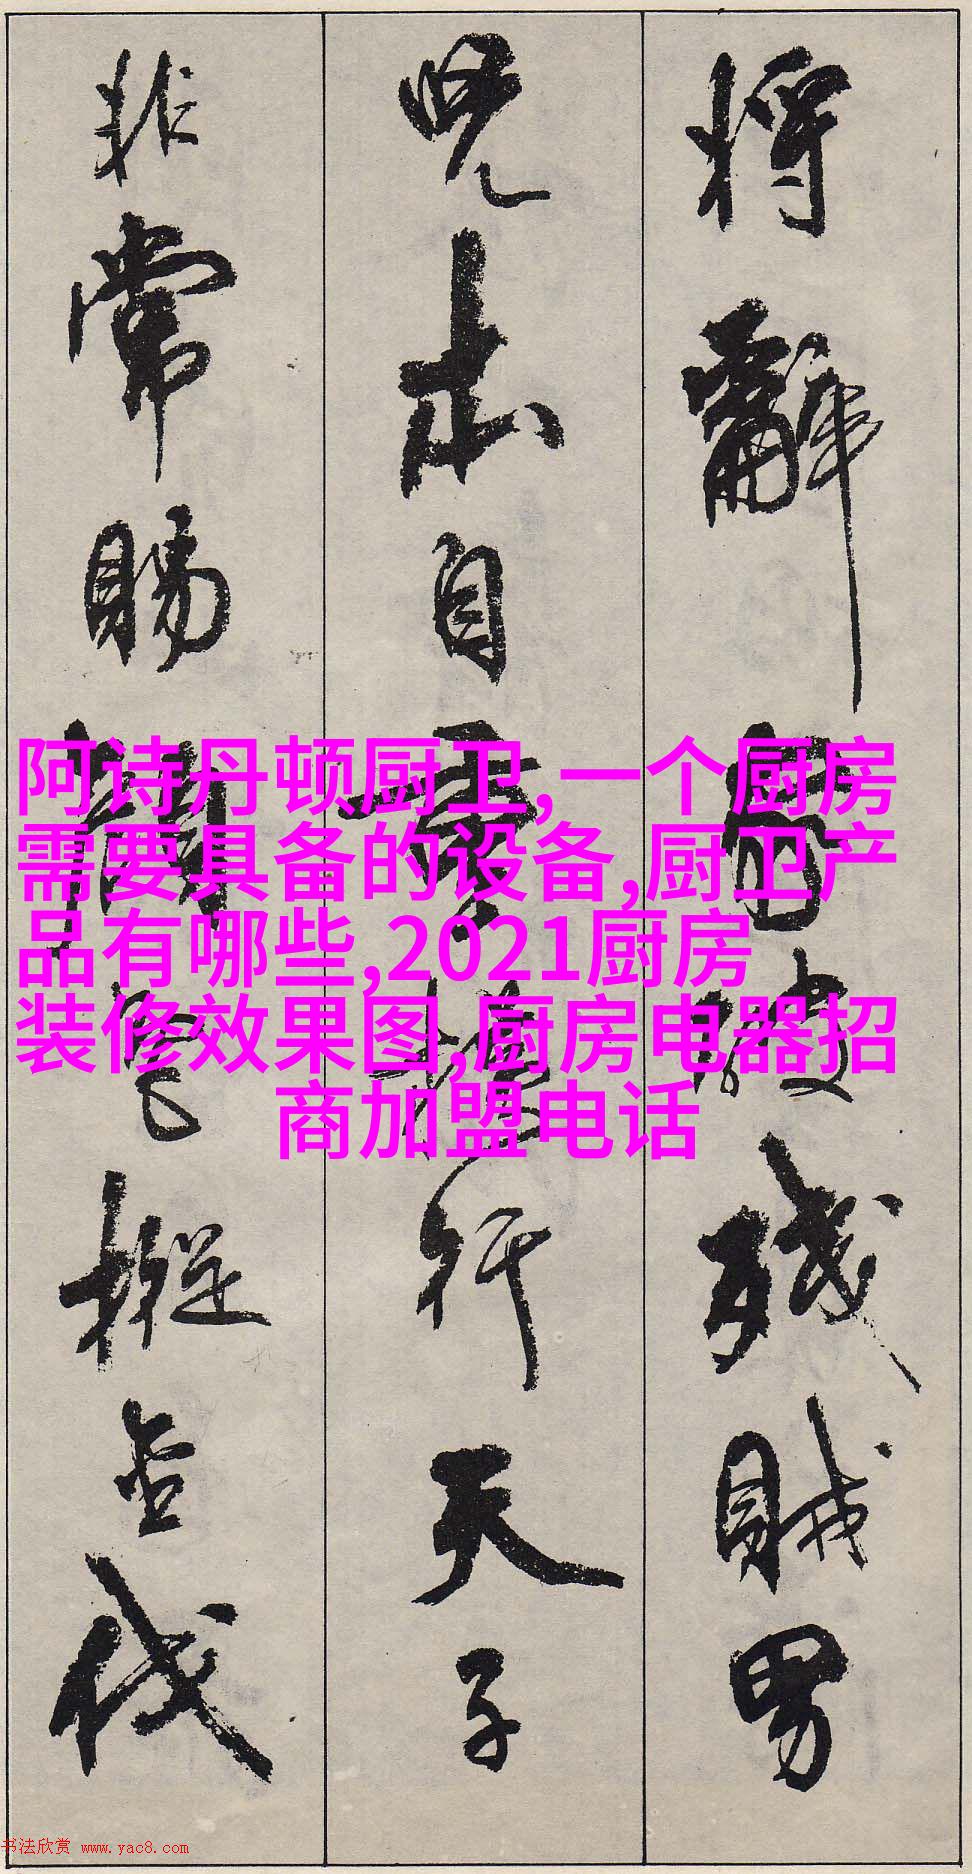 將辭家破殘賊男
兒本自重橫行天子
非常賜顏色摐金伐
阿诗丹顿厨卫,一个厨房
需要具备的设备,厨卫产
品有哪些,2021厨房
装修效果图,厨房电器招
商加盟电话
书法欣赏 www.yac8.com